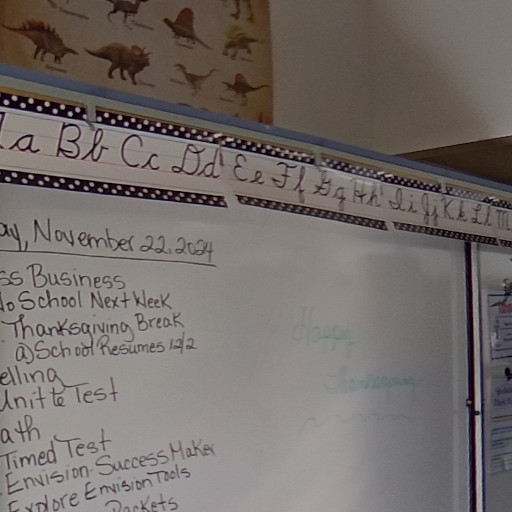 a Bb Cc Dd Ee Ff Gg Hh Ii Jj Kk Ll M
ay, November 22, 2024
ss Business
o School Next Week
Thanksgiving Break
@ School Resumes 12/2
elling
Unit 12 Test
ath
Timed Test
Envision-SuccessMaker
Explore Envision Tools
Packets
Happy
Thanksgiving